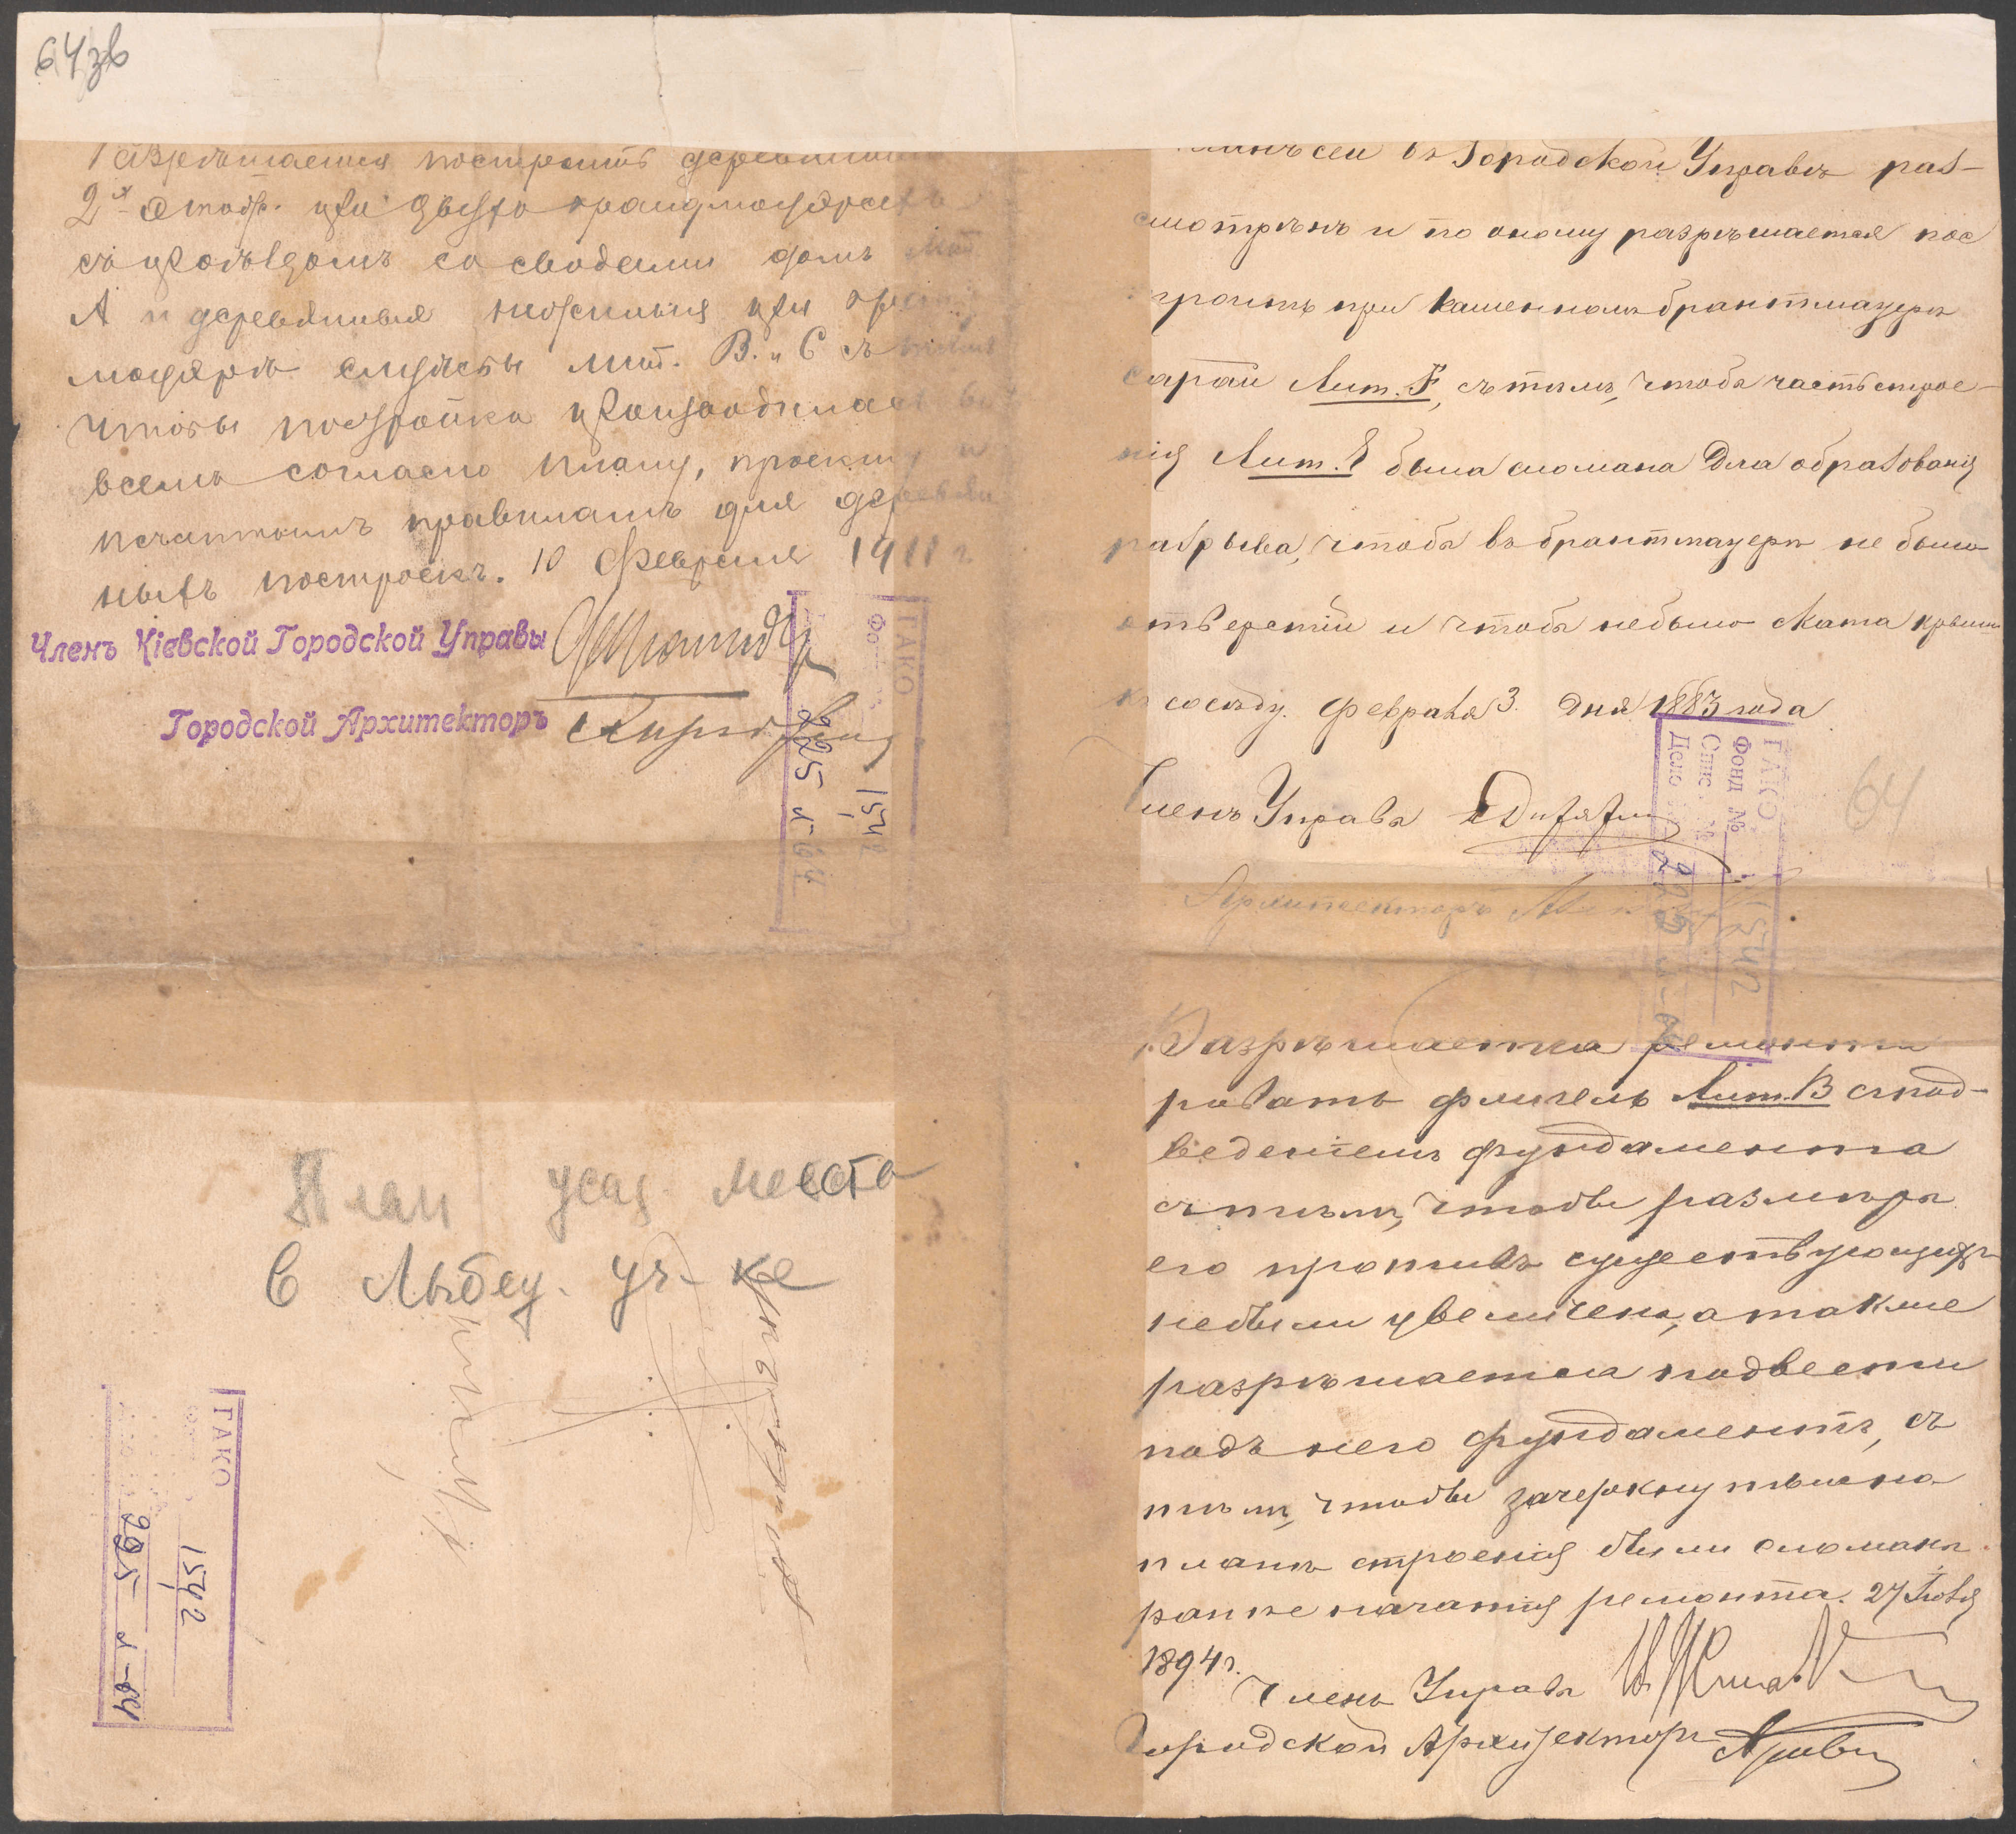 64зв
Разрѣшается построить деревянный
2х этажн. при двухъ брандмауэрахъ
съ подъѣздомъ со сводами домъ лит.
А и деревянныя нежилыя при бранд
мауэрѣ службы лит. В. и С съ тѣмъ
чтобы постройка производилась во
всемъ согласно плану, проекту и
печатнымъ правиламъ для деревян
ныхъ построекъ. 10 Февраля 1911 г
Членъ Кіевской Городской Управы
Городской Архитекторъ
ГАКО
Фо
1542
225 л-64
План усад. места
в Лыбед. уч-ке
ГАКО
1542
225 л-64
сей въ Городской Управѣ раз-
смотрѣнъ и по оному разрѣшается пос
троить при каменномъ брантмауерѣ
сарай Лит. F, съ тѣмъ, чтобы часть строе-
нія Лит. E была сломана для образованія
разрыва, чтобы въ брантмауерѣ не было
отверстій и чтобы небыло ската крыши
къ сосѣду. Февраля 3. дня 1883 года
Членъ Управы
64
Архитекторъ
ГАКО
Фонд № 1542
Опис. №
Дело 225 л-64
Разрѣшается ремонти
ровать флигель Лит. В съ под-
веденіемъ фундамента
съ тѣмъ, чтобы размѣры
его противъ существующихъ
небыли увеличены, а также
разрѣшается подвести
подъ него фундаментъ, съ
тѣмъ, чтобы зачеркнутыя на
планѣ строенія были сломаны
ранѣе начатія ремонта. 27 Іюля
1894 г.
Членъ Управы
Городской Архитекторъ